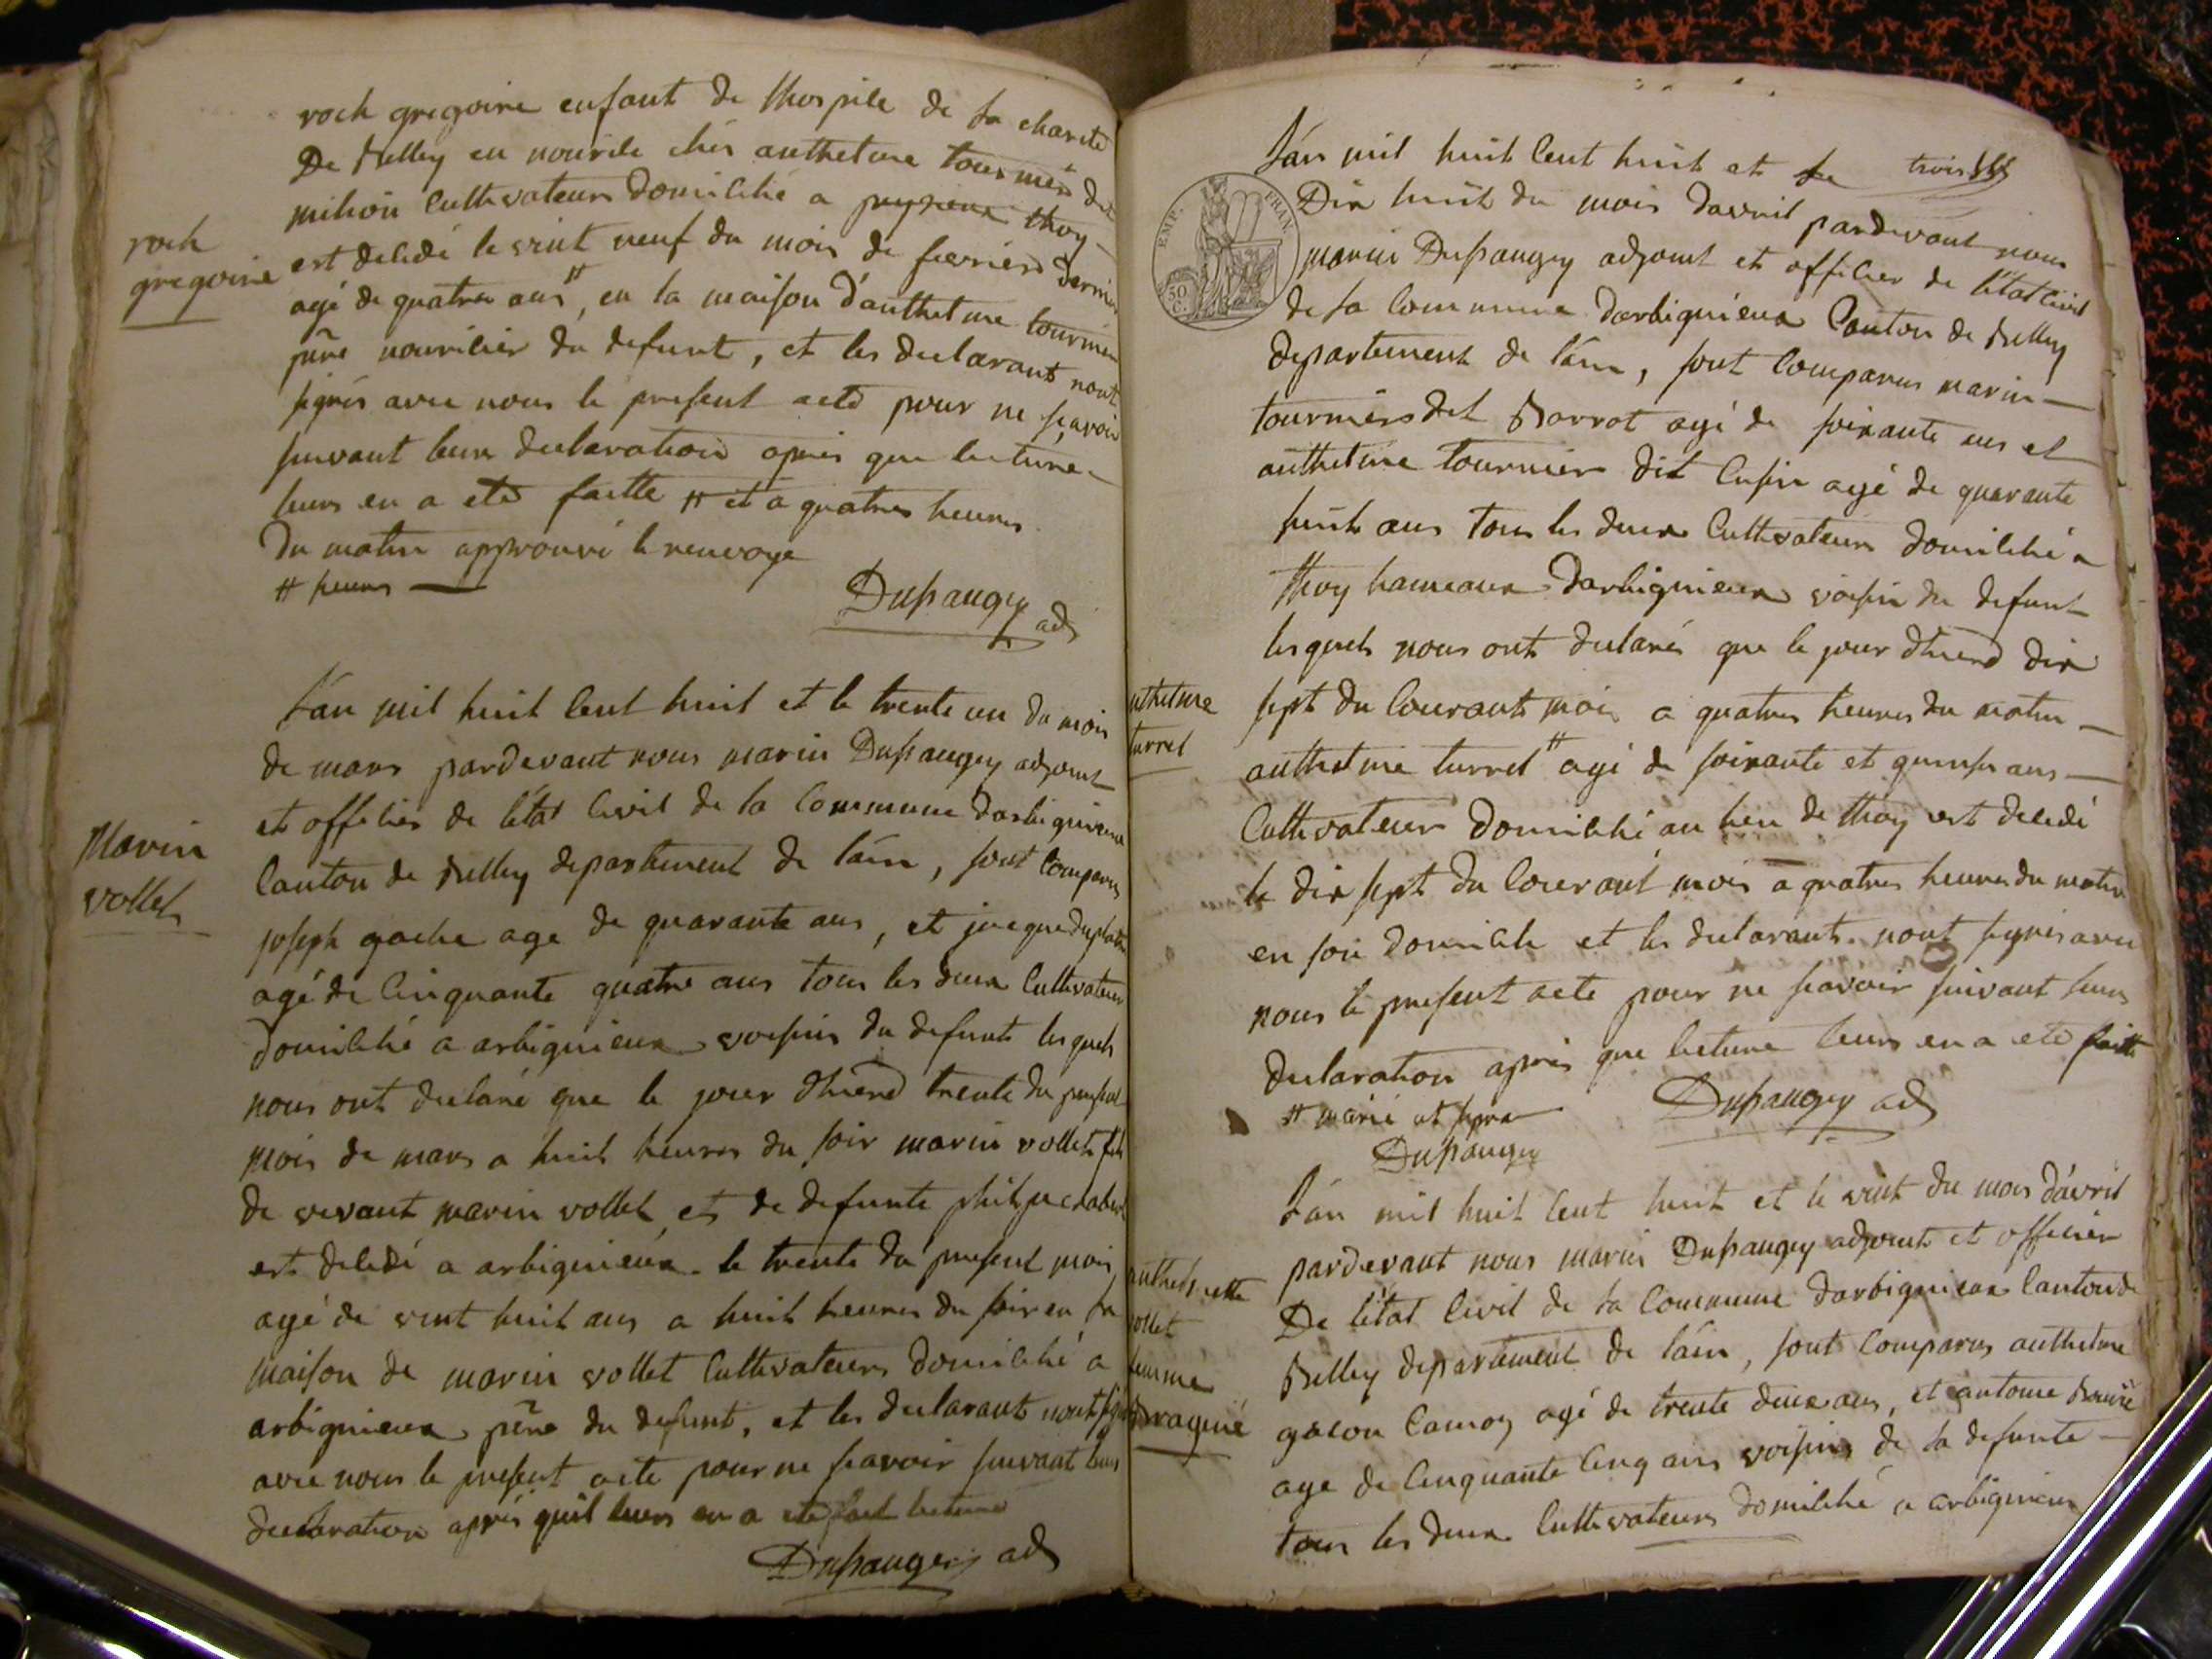 roch gregoire enfant de lhospile de la charité
De Belley en nourile chés anthelme tournier dit
milion Cultivateur domilihé a peyzieux thoy
roch
gregoire
est décédé le vint neuf du mois de fevrier dernier
agé de quatre ans #, en la maison d'anthelme tournier
père nourilier du defunt, et les declarant nont
signés avec nous le present acte pour ne scavoir
suivant leur declaration aprés que lecture
leurs en a eté faitte # et a quatres heures
Du matin approuvé le renvoye
# heures
Dupaugey adj
Lán mil huit Cent huit et le trente un du mois
de mars pardevant nous marin Dupaugey adjoint
et offilier de létat Civil de la Commune darbignieux
Marin
vollet
Canton de Belley departement de láin, sont Comparus
joseph gache age de quarante ans, et jacque duplatre
agé de Cinquante quatre ans tous les deux Cultivateur
domilihé a arbignieux voisins du defunt lesquels
nous ont declaré que le jour dhierd trente du present
mois de mars a huit heures du soir marin vollet fils
de vivant marin vollet et de defunte
est décédé a arbignieux le trente du present mois
agé de vint huit ans a huit heures du soir en la
maison de marin vollet Cultivateurs domilihé a
arbignieux père du defunt, et les declarant nont signé
avec nous le present acte pour ne scavoir suivant leurs
declaration aprés quil leurs en a eté fait lecture
Dupaugey adj
Lán mil huit Cent huit et le trois
Dix huit du mois davril pardevant nous
EMP. FRAN.
50 C.
marin Dupaugey adjoint et offilier de létat Civil
de la Commune darbignieux Canton de Belley
departement de láin, sont Comparus marin
tourniers dit Borrot agé de soixante ans et
anthelme tournier dit Cusin agé de quarante
huit ans tous les deux Cultivateurs domilihé a
thoy hameaux darbignieux voisin du defunt
lesquels nous ont declarés que le jour dhierd dix
anthelme
turrel
sept du Courant mois a quatres heures du matin
anthelme turrel # agé de soixante et quinse ans
Cultivateur domilihé au lieu de thoy est decedé
le dix sept du Courant mois a quatres heures du matin
en son domicile et les declarants nont signés avec
nous le present acte pour ne scavoir suivant leurs
declaration aprés que lecture leurs en a eté faitte
# marié et
Dupaugey adj
Dupaugey
Lán mil huit Cent huit et le vint du mois dávril
pardevant nous marin Dupaugey adjoint et officier
anthelmette
vollet
femme
De létat Civil de la Commune darbignieux Canton de
Belley departement de láin, sont Comparus anthelme
gacon Camoz agé de trente deux ans, et antoine
age de Cinquante Cinq ans voisins de la defunte
tous les deux Cultivateurs domilihé a arbignieux